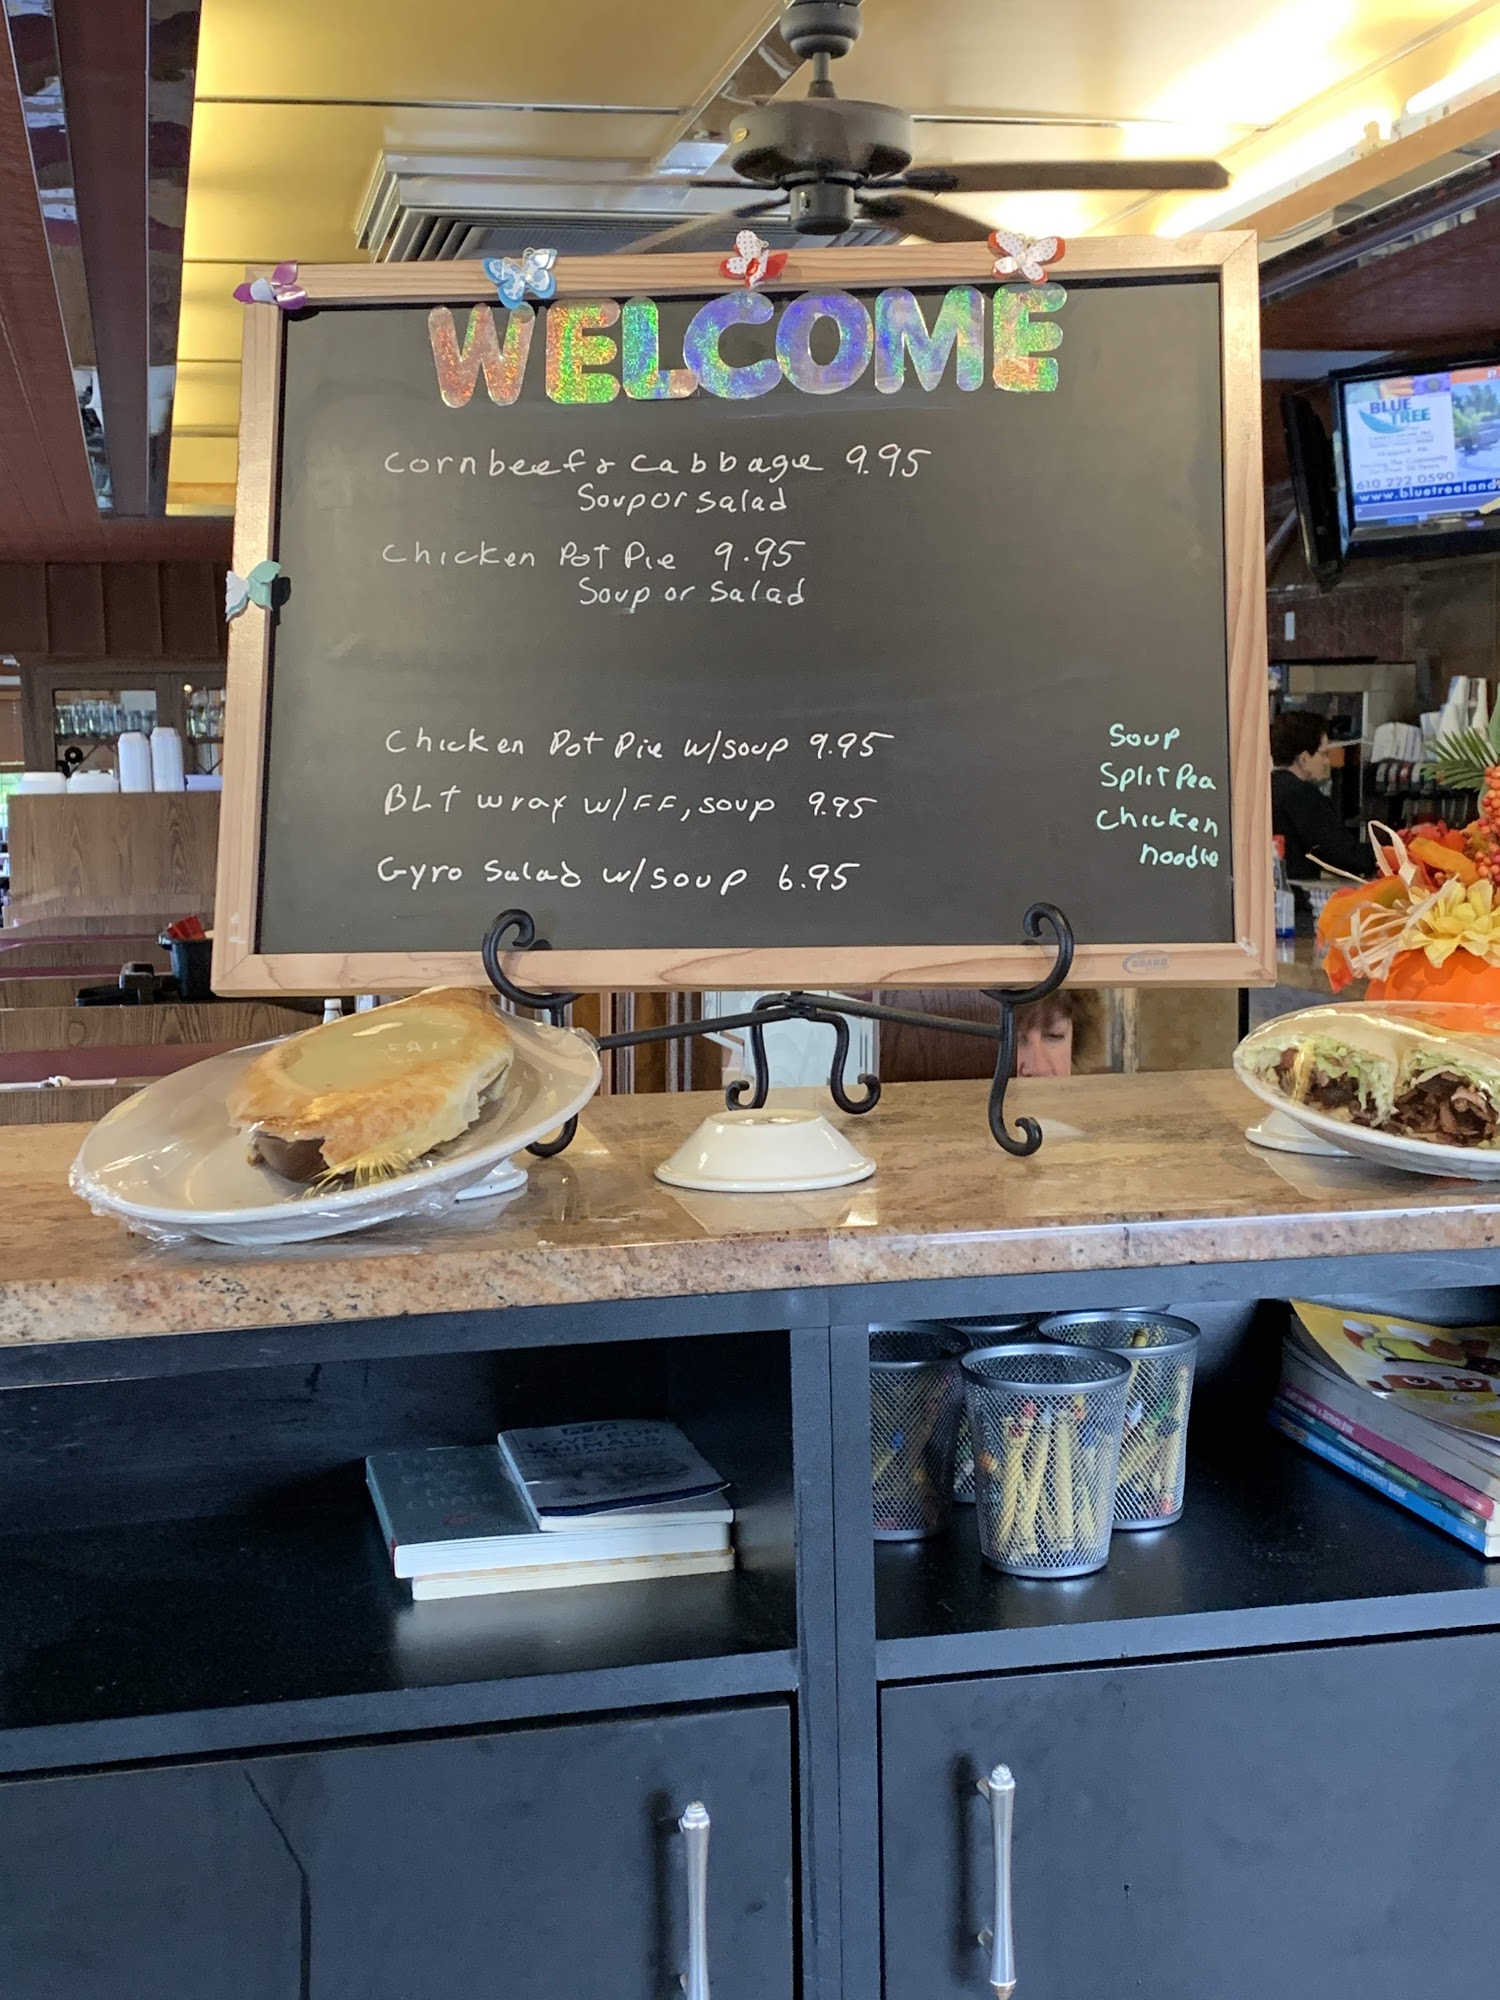 WELCOME
Cornbeef & Cabbage 9.95
Soup or Salad
Chicken Pot Pie 9.95
Soup or Salad
Chicken Pot Pie w/soup 9.95
BLT wrap w/FF, soup 9.95
Gyro Salad w/soup 6.95
Soup
Split Pea
Chicken
noodle
BLUE
TREE
610 222 0590
www.bluetreeland
BOARD
LOVE FOR
ANIMALS